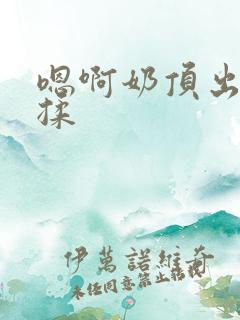 嗯啊奶頂出
揉
伊萬諾維奇
未经同意禁止转载